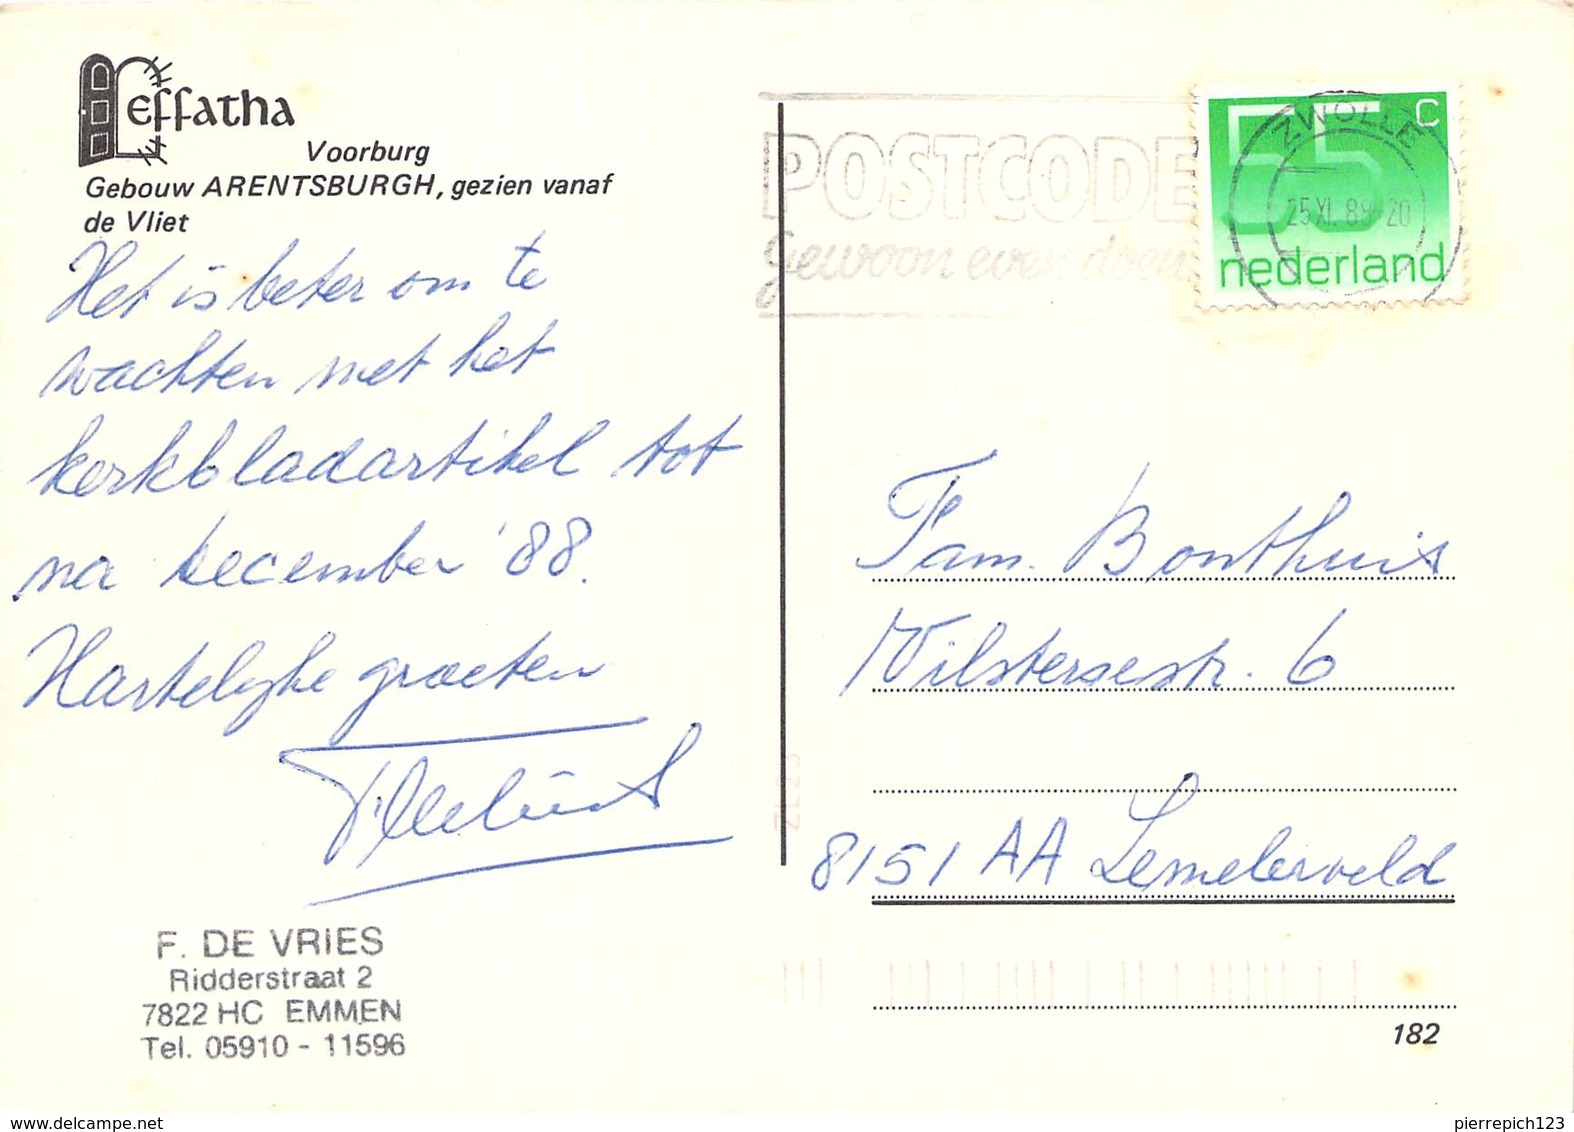 effatha
Voorburg
Gebouw ARENTSBURGH, gezien vanaf
de Vliet
Het is beter om te
wachten met het
kerkbladartikel tot
na december '88.
Hartelijke groeten
F. DE VRIES
Ridderstraat 2
7822 HC EMMEN
Tel. 05910 - 11596
POSTCODE
gewoon even doen
55 c
nederland
ZWOLLE
25 XI. 88-20
Fam. Bonthuis
Vilstersestr. 6
8151 AA Lemelerveld
182
pierrepich123